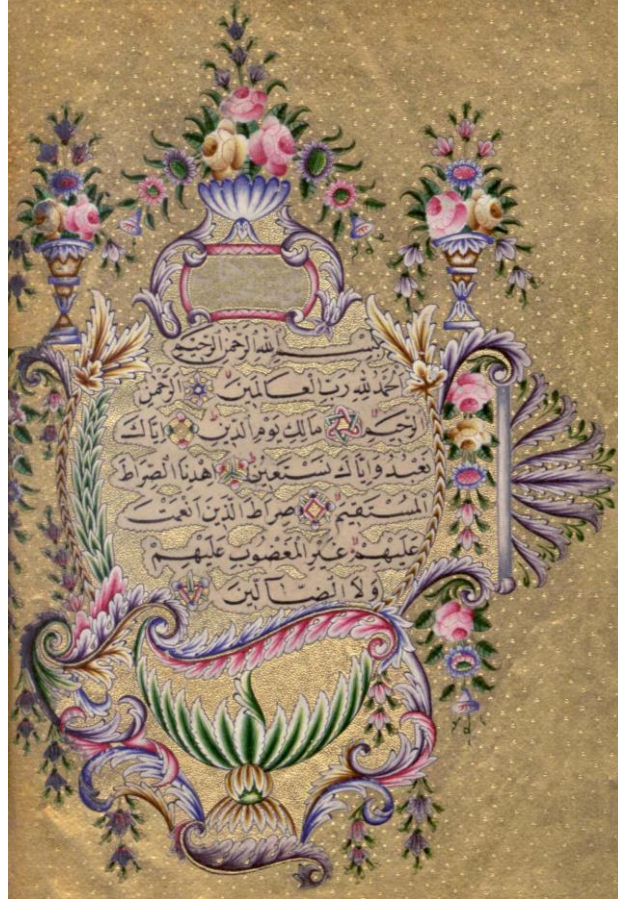 بسم الله الرحمن الرحيم
الحمد لله رب العالمين الرحمن
الرحيم مالك يوم الدين اياك
نعبد واياك نستعين اهدنا الصراط
المستقيم صراط الذين انعمت
عليهم غير المغضوب عليهم
ولا الضالين